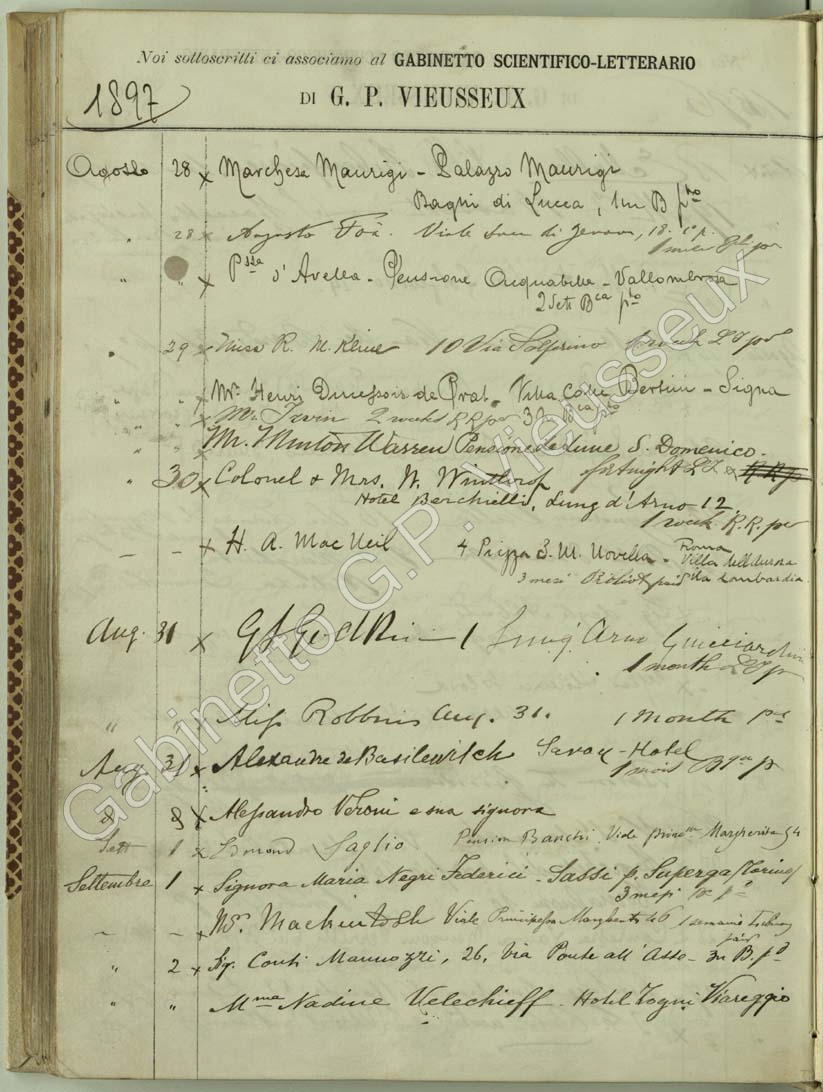 Noi sottoscritti ci associamo al GABINETTO SCIENTIFICO-LETTERARIO
1897
DI G. P. VIEUSSEUX
Agosto 28 x Marchesa Maurigi - Palazzo Maurigi
Bagni di Lucca, 1m B pto
" 28 x Augusto Foà Viale 18.
" " x Pssa d'Avella - Pensione Acquabella - Vallombrosa
2 Sett Bca pto
" 29 x Miss R. M. Kline 10 Via Solferino 1 week
" " x Mr Henri de Prat. Villa Colle Bertini - Signa
" x Mr Irwin 2 weeks RR pd 3m Bca pto
" Mr. Minton Warren Pensione S. Domenico.
" 30 x Colonel & Mrs. W. Winthrop fortnight
Hotel Berchielli, Lung d'Arno 12.
1 week R.R. pd
- - x H. A. MacNeil 4 Piazza S. M. Novella - Roma
Villa dell'Aurora
3 mesi paid Via Lombardia
Aug. 31 x 1 Lung'Arno Guicciardini
1 month
" " x Miss Robbins Aug. 31. 1 month pd
Aug 31 x Alexandre de Basilewitch Savoy-Hotel
1 mois p
" " x Alessandro Veroni e sua signora
Sett 1 x Edmond Saglio Pension Banchi. Viale Princssa Margherita 54
Settembre 1 x Signora Maria Negri Federici - Sassi p. Superga (Torino)
3 mesi
- - x Mrs. Mackintosh Viale Principessa Margherita 46 1 semaine
paid
" 2 x Sig. Conti Mannozzi, 26, Via Ponte all'Asse - 3m B. pd
" " Mme Nadine Velechieff - Hotel Togni Viareggio
Gabinetto G.P. Vieusseux